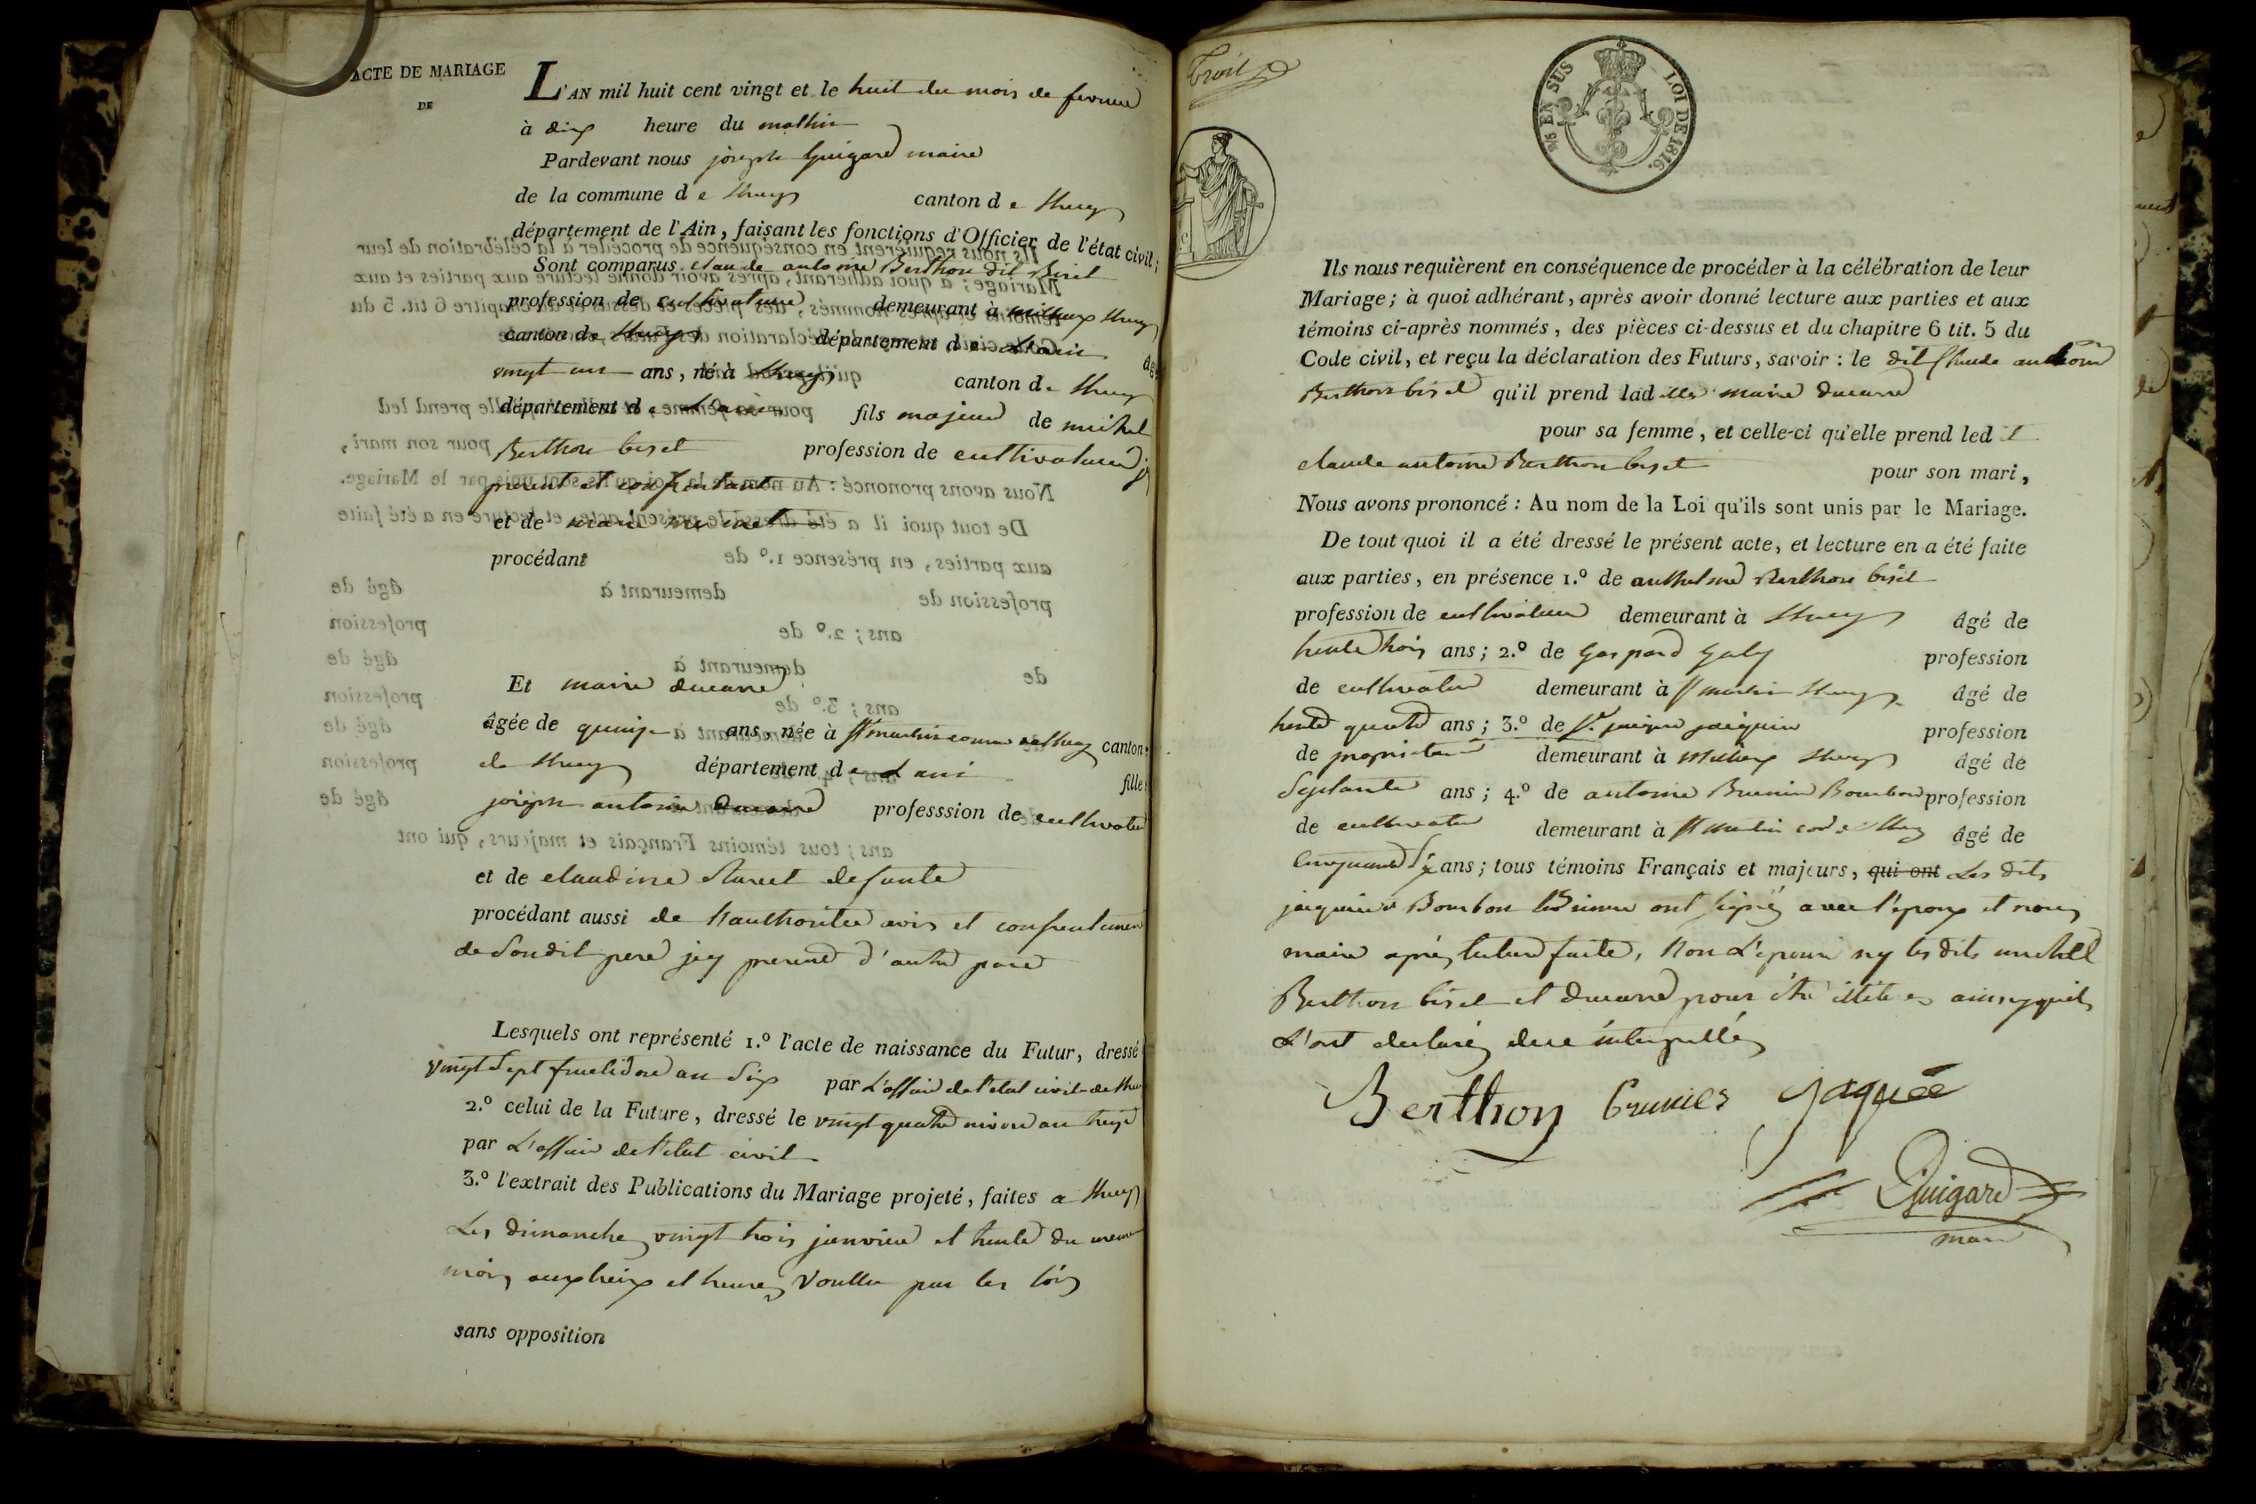 ACTE DE MARIAGE
DE
L'AN mil huit cent vingt et le huit du mois de fevrier
à dix heure du mathin
Pardevant nous joseph Guigard maire
de la commune de Lhuys canton de Lhuys
département de l'Ain, faisant les fonctions d'Officier de l'état civil;
Sont comparus claude antoine Berthon dit Biset
profession de cultivateur demeurant à Lhuys
canton de Lhuys département de L'ain âgé
vingt un ans, né à Lhuys canton de Lhuys
département de L'ain fils majeur de michel
Berthon biset profession de cultivateur
present et consentant
et de marie
procédant
Et marie ducarre
âgée de quinze ans, née à St martin canton
de Lhuys département de L'ain fille
joseph antoine ducarre professsion de cultivateur
et de claudine defunte
procédant aussi de l'authoritée avis et consentement
de son dit pere jcy present d'autre part
Lesquels ont représenté 1.º l'acte de naissance du Futur, dressé
vingt sept fructidor an six par L'officier de l'etat civil de Lhuys
2.º celui de la Future, dressé le vingt quatre nivose an treize
par L'officier de l'etat civil
3.º l'extrait des Publications du Mariage projeté, faites a Lhuys
Les dimanche vingt trois janvier et trente du meme
mois aux lieux et heures voullu par les lois
sans opposition
95 EN SUS LOI DE 1816.
Ils nous requièrent en conséquence de procéder à la célébration de leur
Mariage; à quoi adhérant, après avoir donné lecture aux parties et aux
témoins ci-après nommés, des pièces ci-dessus et du chapitre 6 tit. 5 du
Code civil, et reçu la déclaration des Futurs, savoir : le dit Claude anthoine
Berthon biset qu'il prend ladite marie ducarre
pour sa femme, et celle-ci qu'elle prend ledit
claude antoine Berthon biset pour son mari,
Nous avons prononcé : Au nom de la Loi qu'ils sont unis par le Mariage.
De tout quoi il a été dressé le présent acte, et lecture en a été faite
aux parties, en présence 1.º de anthelme Berthon biset
profession de cultivateur demeurant à Lhuys âgé de
trente trois ans; 2.º de Gaspard Galy profession
de cultivateur demeurant à St martin Lhuys âgé de
trente quatre ans; 3.º de Sr. jacques jacquier profession
de proprietaire demeurant à Lhuys âgé de
Septante ans; 4.º de antoine Brunier Bourbon profession
de cultivateur demeurant à St martin âgé de
cinquante six ans; tous témoins Français et majeurs, qui ont Les dits
jacquier Bourbon Brunier ont signés avec l'epoux et nous
maire après lecture faite, Non L'epouse ny les dits michel
Berthon biset et ducarre pour être illiterés ainsy quils
L'ont declarés dece interpellés
Berthon Brunier jaquée
Guigard
maire